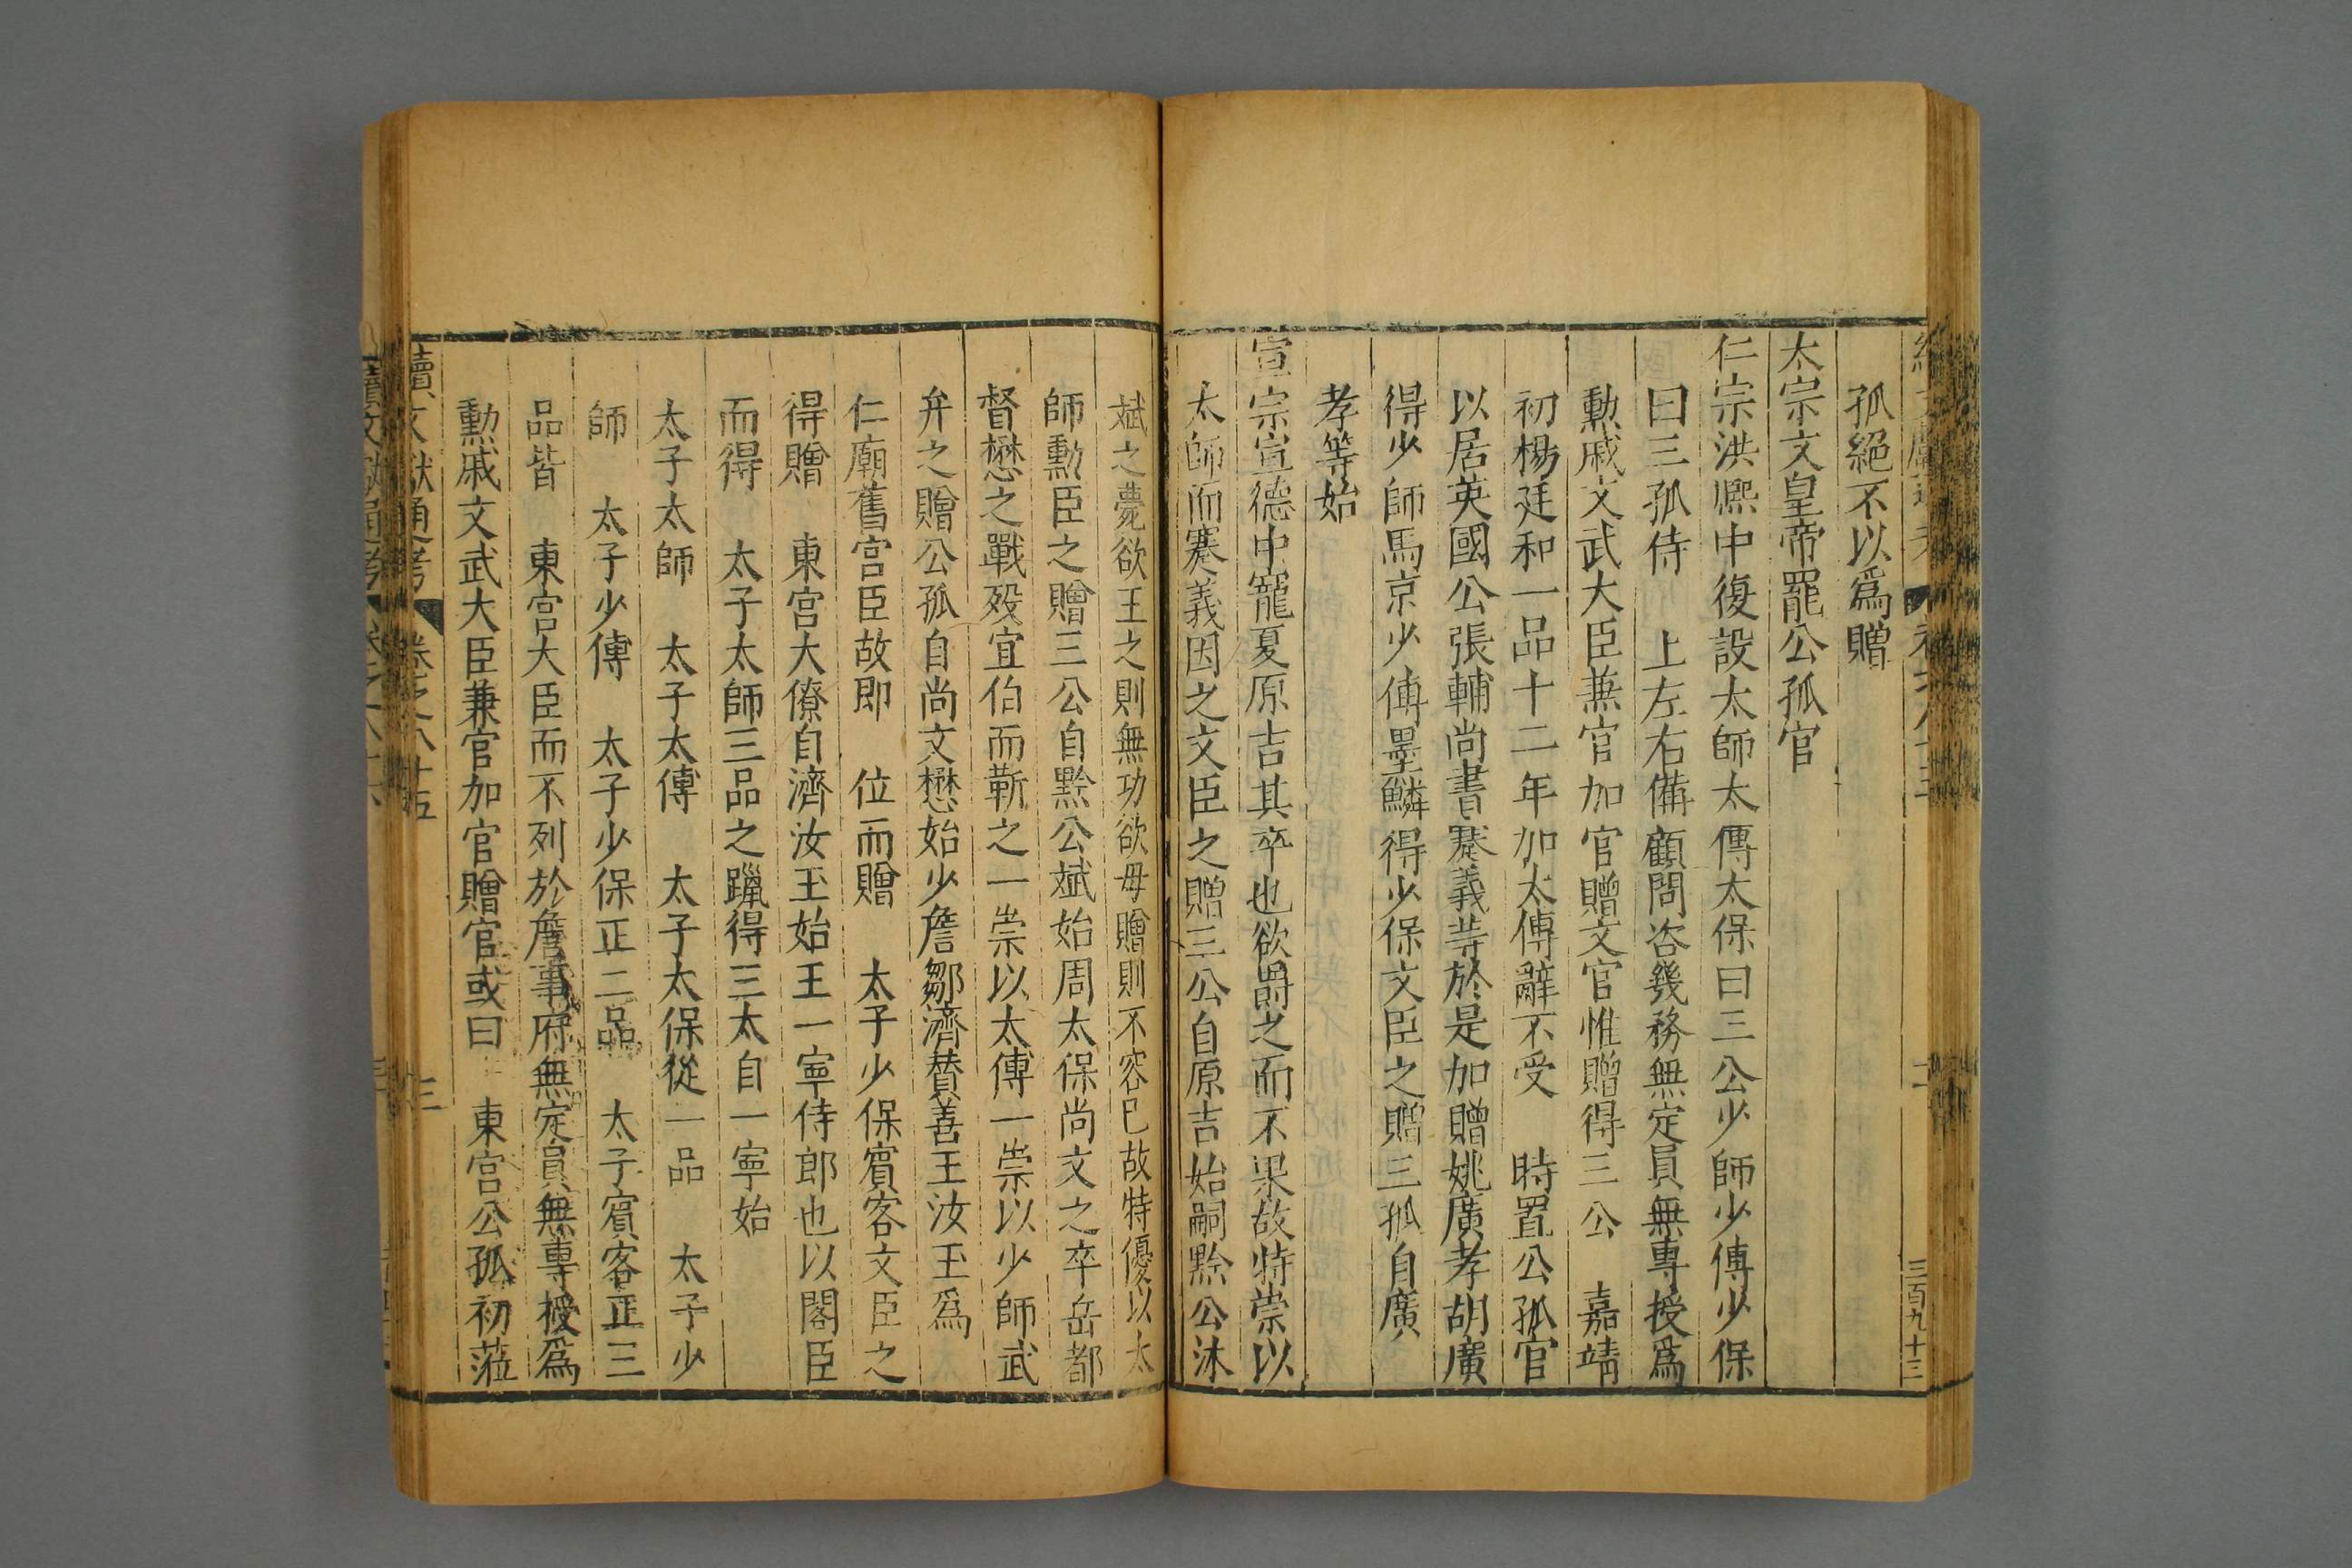 三百九十三
孤絕不以爲贈
太宗文皇帝罷公孤官
仁宗洪熈中復設太師太傅太保曰三公少師少傅少保
曰三孤侍 上左右備顧問咨幾務無定員無專授爲
勲戚文武大臣兼官加官贈文官惟贈得三公 嘉靖
初楊廷和一品十二年加太傅辭不受 時置公孤官
以居英國公張輔尚書蹇義等於是加贈姚廣孝胡廣
得少師馬京少傅墨鱗得少保文臣之贈三孤自廣
孝等始
宣宗宣德中寵夏原吉其卒也欲爵之而不果故特崇以
太師而蹇義因之文臣之贈三公自原吉始嗣黔公沐
斌之薨欲王之則無功欲毋贈則不容已故特優以太
師勳臣之贈三公自黔公斌始周太保尚文之卒岳都
督懋之戰歿宜伯而靳之一崇以太傅一崇以少師武
弁之贈公孤自尚文懋始少詹鄒濟賛善王汝玉爲
仁廟舊宮臣故即 位而贈 太子少保賓客文臣之
得贈 東宮大僚自濟汝玉始王一寧侍郎也以閣臣
而得 太子太師三品之躐得三太自一寧始
太子太師 太子太傅 太子太保從一品 太子少
師 太子少傅 太子少保正二品 太子賓客正三
品皆 東宮大臣而不列於詹事府無定員無專授爲
勳戚文武大臣兼官加官贈官或曰 東宮公孤初蒞
續文獻通考 卷之八十五 三